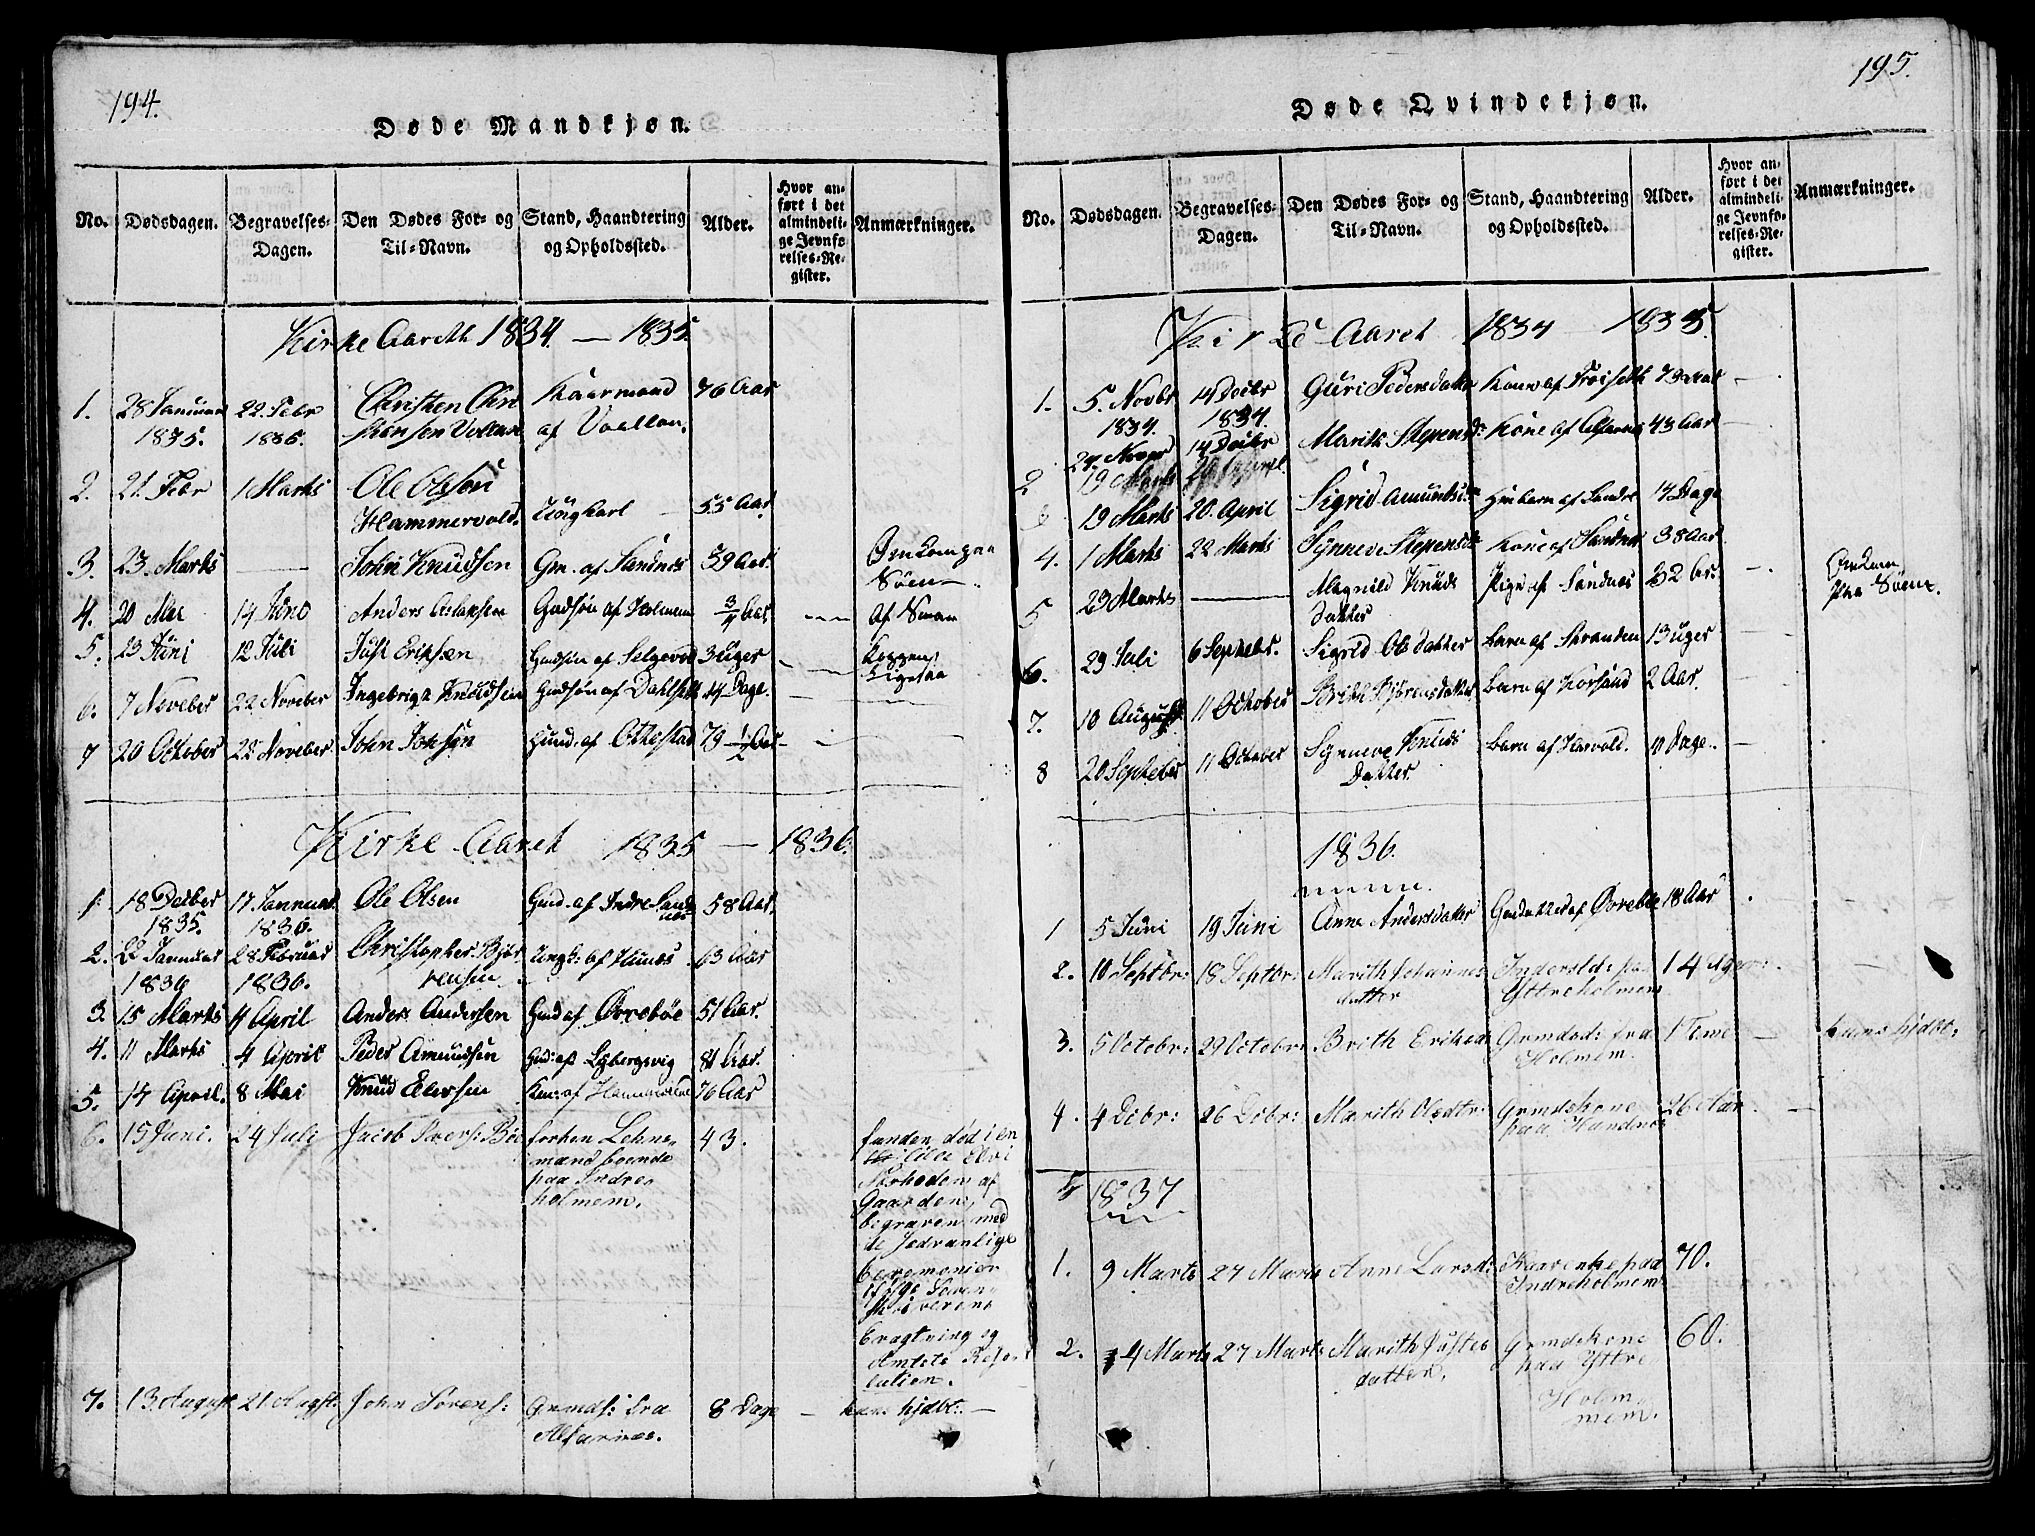 194.
Døde Mandkjøn.
No. Dødsdagen. Begravelses-Dagen. Den Dødes For- og Til-Navn. Stand, Haandtering og Opholdssted. Alder. Hvor anført i det almindelige Jevnførelses-Register. Anmærkninger.
Kirke Aareth 1834. — 1835.
1. 28 Januar 1835. 22. Febr 1835. Christen Chri Kaarmand af 76 Aar
2. 21. Febr 1 Marts Ole Olsen Hammervold. 55 Aar
3. 23. Marts — John Knudsen Gm. af Sandnes 59 Aar. Omkom paa Søen
4. 20 Mai 14 Juno Anders Aslaksen Gudsøn af Holmem 3/4 Aar Af
5. 23 Juni 12 Juli Just Eriksen Gudsøn af 3 Uger
6. 7 Noveber 22 Noveber Ingebrigt Knudsen Gudsøn af 14 Dage.
7 20 Octobr 22 Noveber John Johsen Huusd. af Otthestad 79 1/2 Aar
Kirke-Aaret 1835 — 1836.
1. 18 Decber 1835. 17 Januar 1836. Ole Olsen Gud. af Indre Sandnes 58 Aar.
2. 22 Januar 1836 28 Februar 1836. Christopher Bjørnsen Ungk: af 63 Aar
3. 15 Marts 4 April Anders Andersen Gud af Ørrebøe 51 Aar.
4. 11 Marts 4 April Peder Amundsen Gud: af 81 Aar.
5. 14 April. 8 Mai Knud Elersen af 76 Aar
6. 15 Juni. 24 Juli Jacob forhen Lehnsmand boende paa Indreholmem. 43. funden død i en lille Elv i Nærheden af Gaarden, begraven med de sædvanlige Ceremonier ifølge Sorenskriverens Eragtning og Amtets Resolution.
7. 13 August 21 Augst: John Sørens: Grmds: fra Alfarnæs. 8 Dage — hiemdøbt. —
195.
Døde Qvindekjøn.
No. Dødsdagen. Begravelses-Dagen. Den Dødes For- og Til-Navn. Stand, Haandtering og Opholdssted. Alder. Hvor anført i det almindelige Jevnførelses-Register. Anmærkninger.
Kirke Aaret 1834 1835.
1. 5. Novbr 1834. 14 Decbr 1834. Guri Pedersdatter Kone af 73 Aar —
2 27 Novbr 14 Decbr Marith Kone af 43 Aar —
3 19 Marts 20. April Sigrid Amundsd. af 14 Dage
4. 1 Marts 22 Marts Synneve Kone af Sandnes 38 Aar
5 23 Marts — Magnild Knuds datter Pige af Sandnes 32 Ar. — Omkom paa Søen.
6. 29 Juli 6 Septebr. Sigrid Ols datter Barn af Stranden 13 Uger
7. 10 August 11 October Brithe Bjørensdatter Barn af Horsand 2 Aar.
8 20 Septeber 11 October Synneve Knuds Datter Barn af 11 Dage. —
1836.
1 5 Juni 19 Juni Anne Andersdatter af Ørrebøe 18 Aar
2. 10 Septbr: 18 Septbr: Marith Johannes datter paa Yttreholmem 14
3. 5 Octobr: 29 Octobr: Brith Eriksd Grmdsd: fra Holmem. 1 Time — hiemdøbt.
4. 4 Debr: 26 Debr: Marith Olsdtr: Grmdskone paa Sandnæs 26 Aar —
1837
1. 9 Marts 27 Marts Anne Larsd: Kaarenke paa Indreholmem 70.
2. 14 Marts 27 Marts Marith Justes datter. Grmdskone paa Yttre Holmmem. 60.